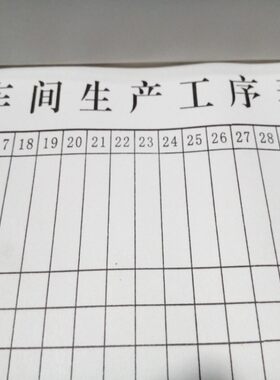 车间生产工序
7 18 19 20 21 22 23 24 25 26 27 28